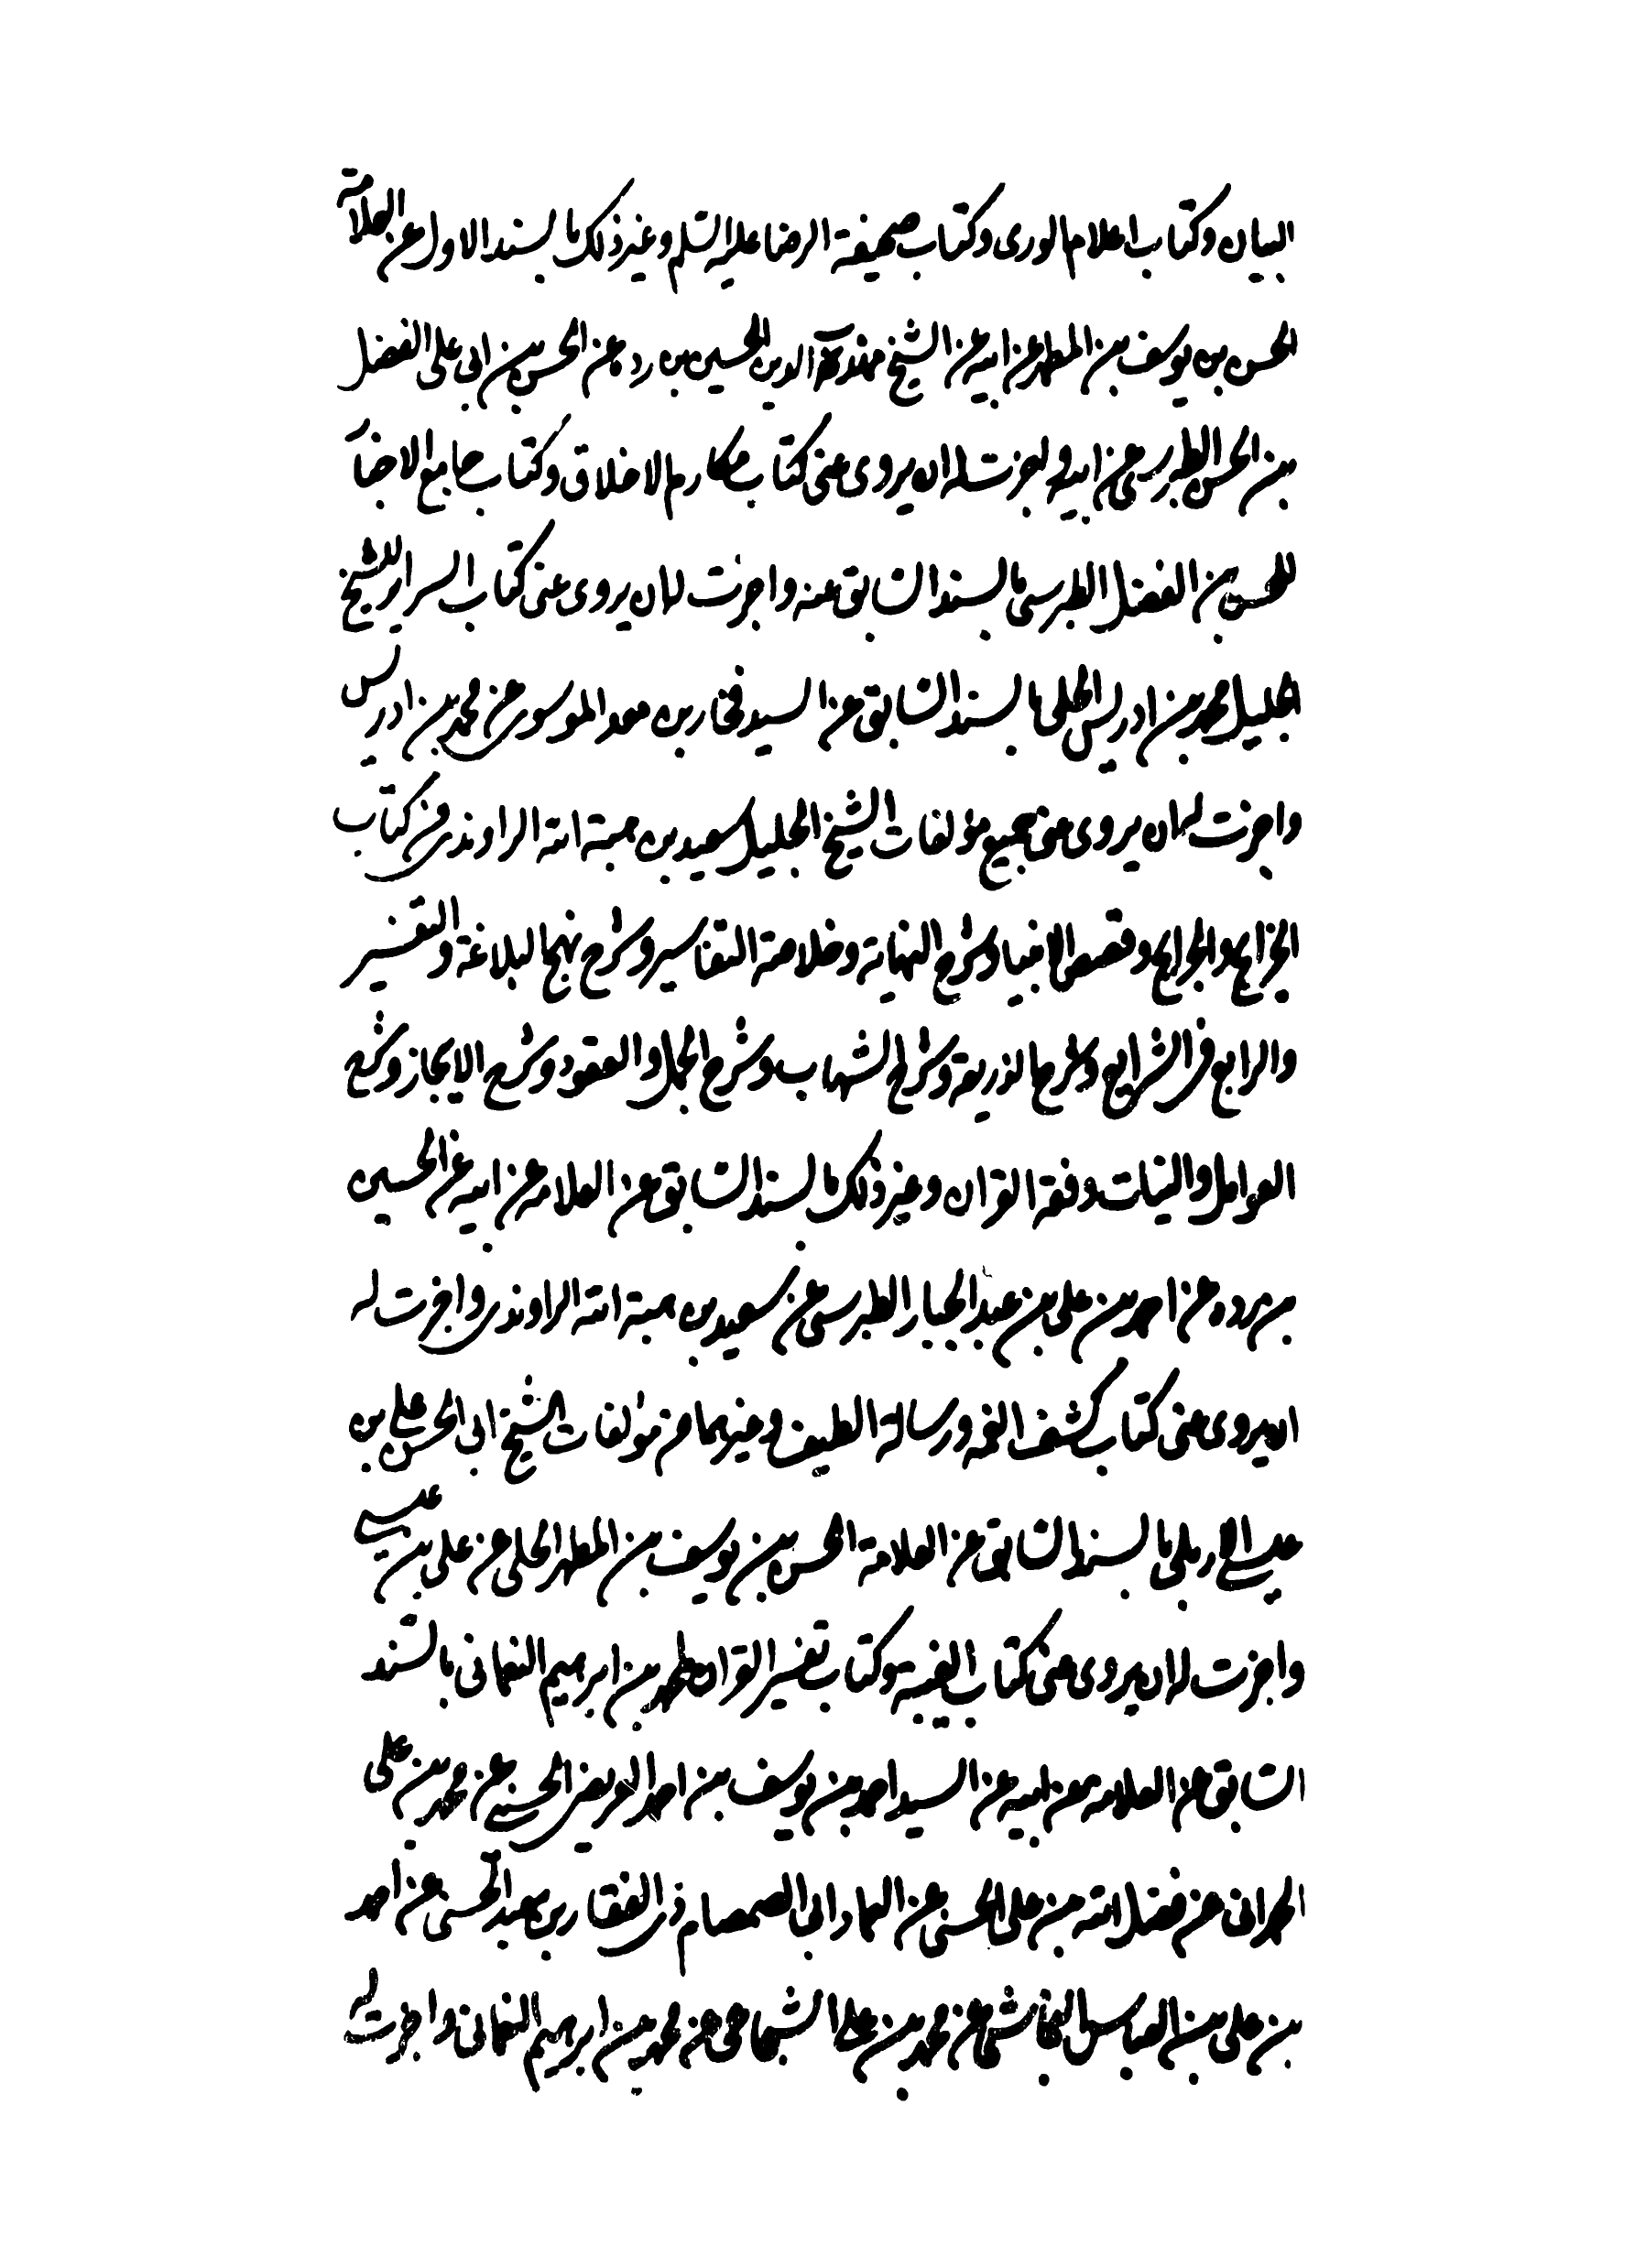 البيان وكتاب اعلام الورى وكتاب صحيفة الرضا عليه السلم وغير ذلك بالسند الاول عن العلامة
الحسن بن يوسف بن المطهر عن ابيه عن الشيخ مهذب الدين الحسين بن رده عن الحسن بن ابى على الفضل
بن الحسن الطبرسى عن ابيه واجزت له ان يروى عنى كتاب مكارم الاخلاق وكتاب جامع الاخبار
للحسن بن الفضل الطبرسى بالسند السابق عنه واجزت له ان يروى عنى كتاب السراير للشيخ
الجليل محمد بن ادريس الحلى بالسند السابق عن السيد فخار بن معد الموسوى عن محمد بن ادريس
واجزت له ان يروى عنى جميع مؤلفات الشيخ الجليل سعيد بن هبة الله الراوندى من كتاب
الخرايج والجرايح وقصص الانبياء وشرح النهاية وخلاصة التفاسير وشرح نهج البلاغة والتفسير
والرابع فى الشرايع وشرح الذريعة وشرح الشهاب وشرح الجمل والعقود وشرح الايجاز وشرح
العوامل والنيات وفقه القران وغير ذلك بالسند السابق عن العلامه عن ابيه عن الحسين
بن رده عن احمد بن على بن عبد الجبار الطبرسى عن سعيد بن هبة الله الراوندى واجزت له
ان يروى عنى كتاب كشف الغمه ورسالة الطيف وغيرهما من مؤلفات الشيخ ابى الحسن على بن
عيسى الاربلى بالسند السابق عن العلامة الحسن بن يوسف بن المطهر الحلى عن على بن عيسى
واجزت له ان يروى عنى كتاب الغيبة وكتاب تفسير القران لمحمد بن ابرهيم النعمانى بالسند
السابق عن العلامه عن ابيه عن السيد احمد بن يوسف بن احمد العريضى الحسينى عن محمد بن على
الحمدانى عن فضل الله بن على الحسنى عن العماد ابى الصمصام ذى الفقار بن معبد الحسنى عن احمد
بن على بن العباس النجاشى عن محمد بن على الشجاعى عن محمد بن ابرهيم النعمانى واجزت له